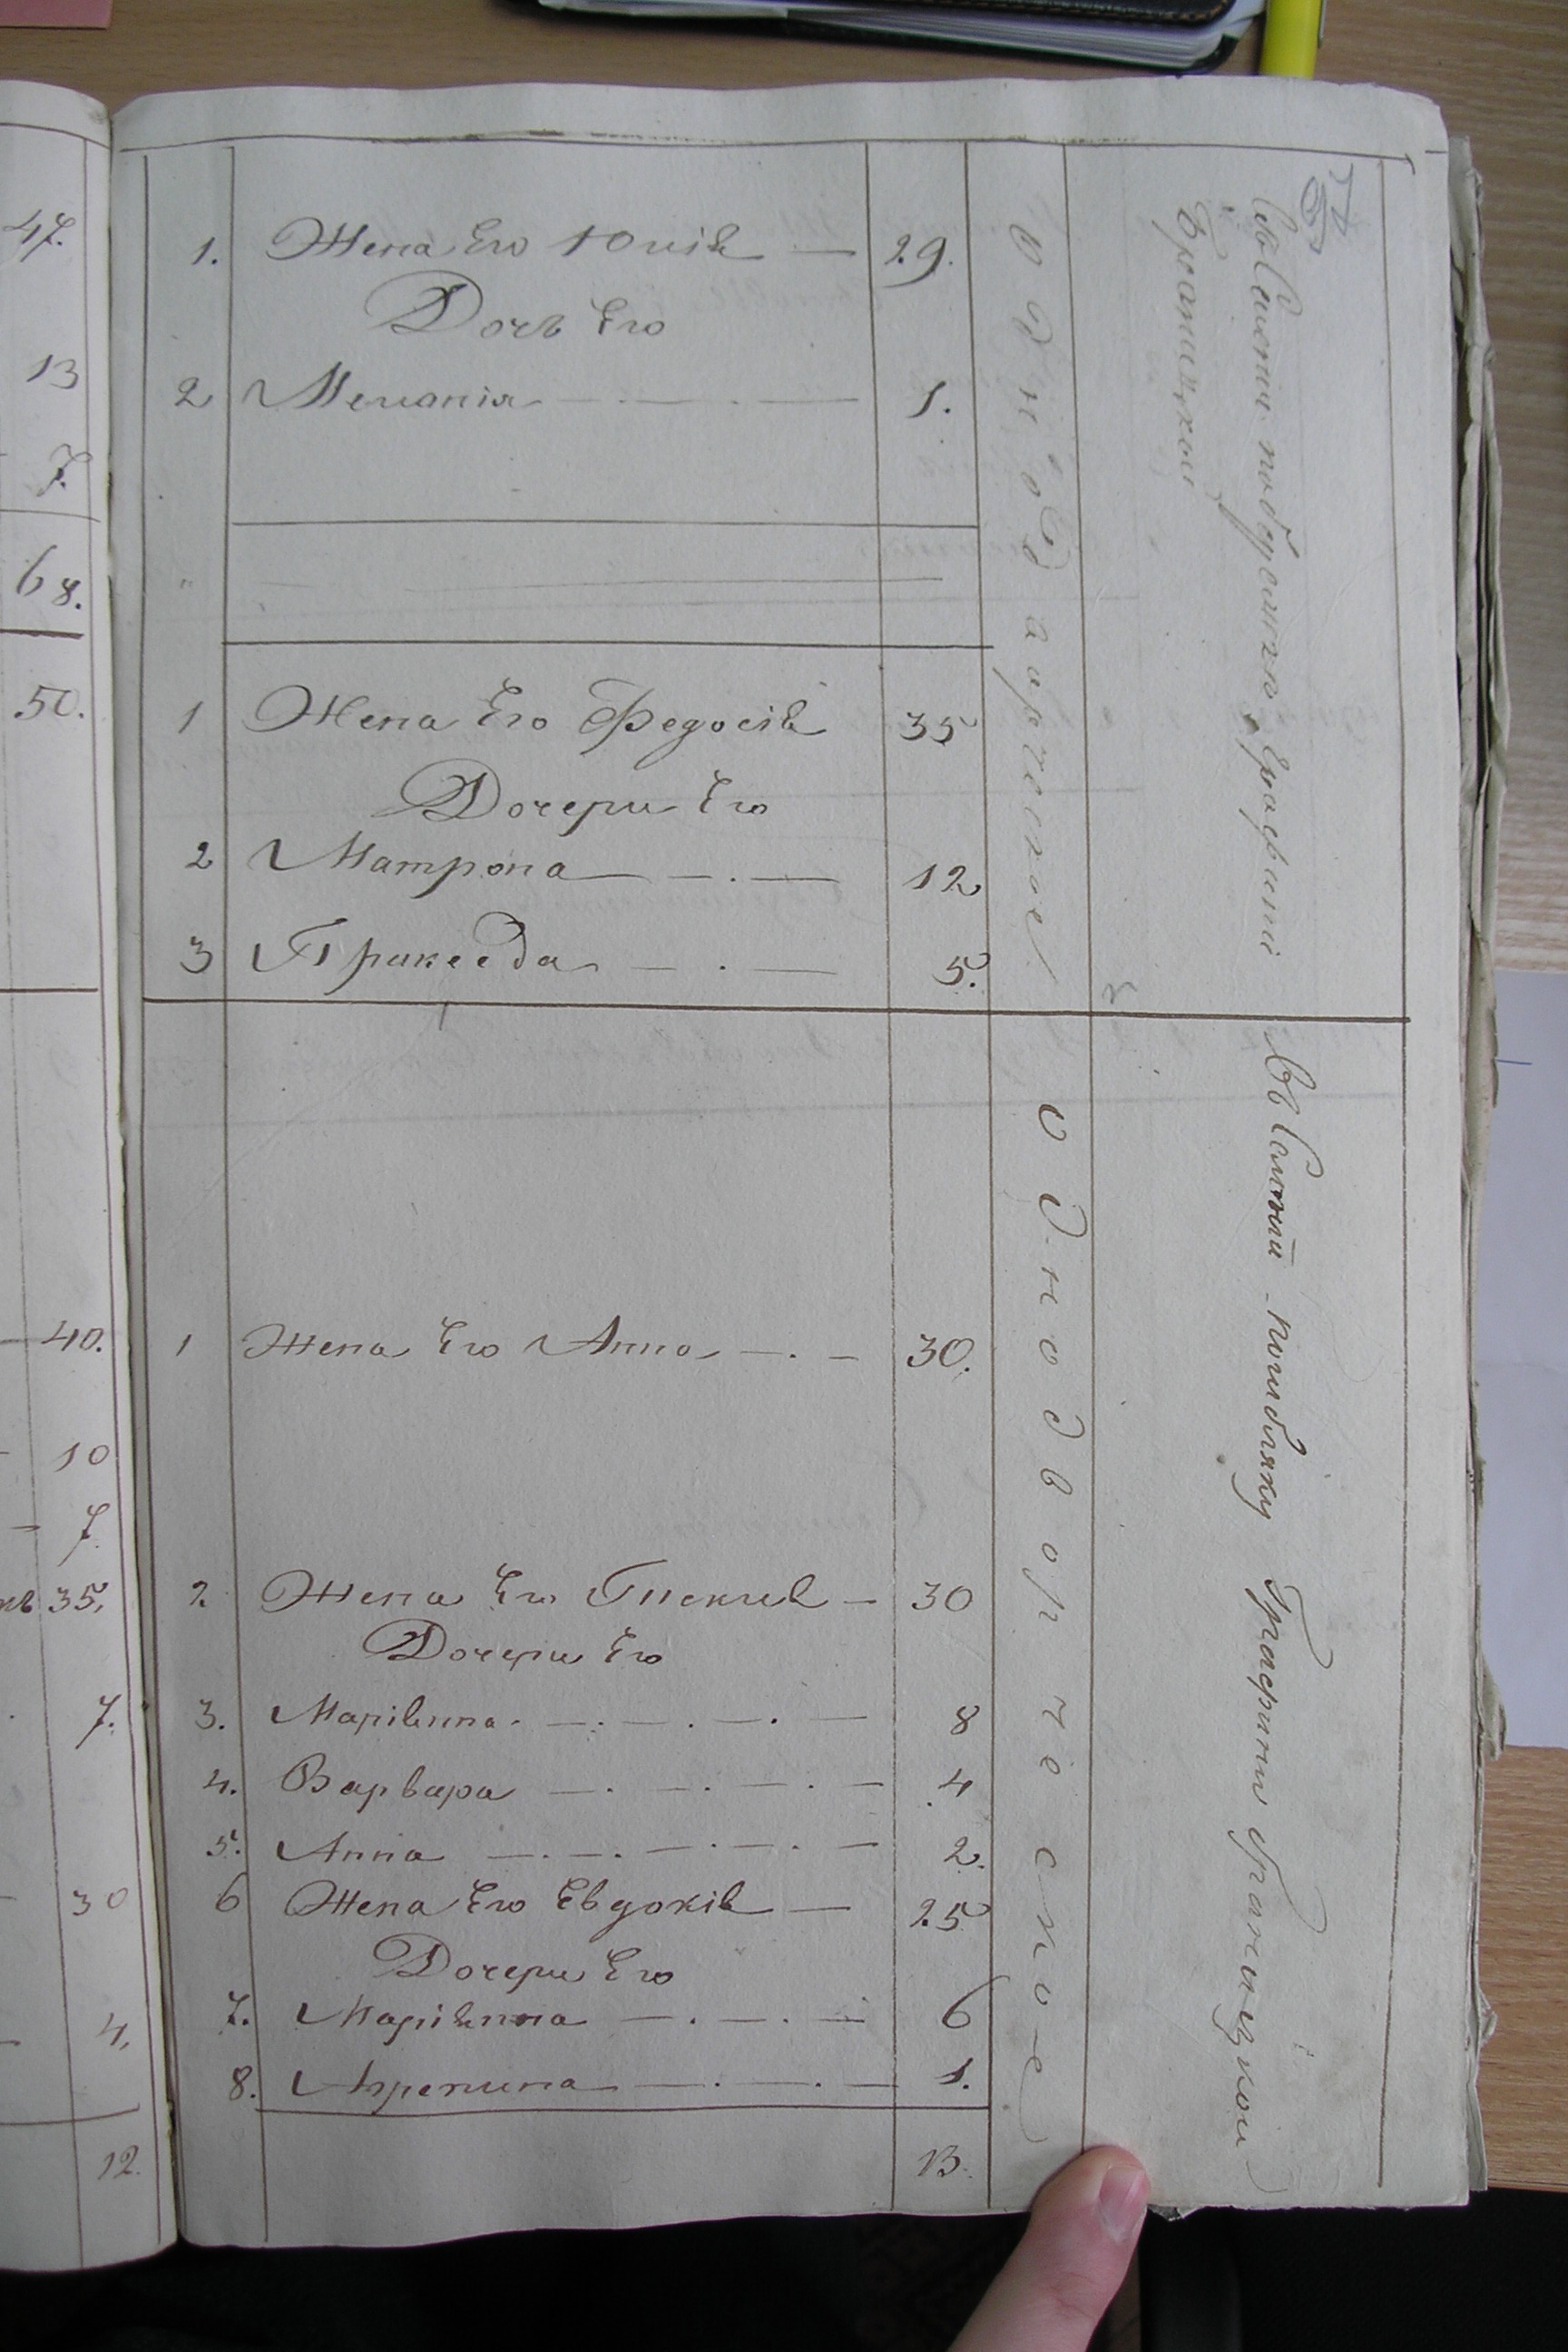 47.
13
7.
68.
50.
40.
10
7.
35.
7.
30
4.
12.
1. Жена Его Юлія — 29.
Дочь Его
2 Меланія — 1.
1 Жена Его Федосія 35
Дочери Его
2 Матрона — 12
3 Пракседа — 5.
1 Жена Его Анна — 30.
2. Жена Его Текля — 30
Дочери Его
3. Маріянна — 8
4. Варвара — 4
5. Анна — 2.
6 Жена Его Евдокія — 25
Дочери Его
7. Маріянна — 6
8. Агрепина — 1.
13.
однодворческое
однодворческое
Графинѣ
Браницкой
Графини Браницкой